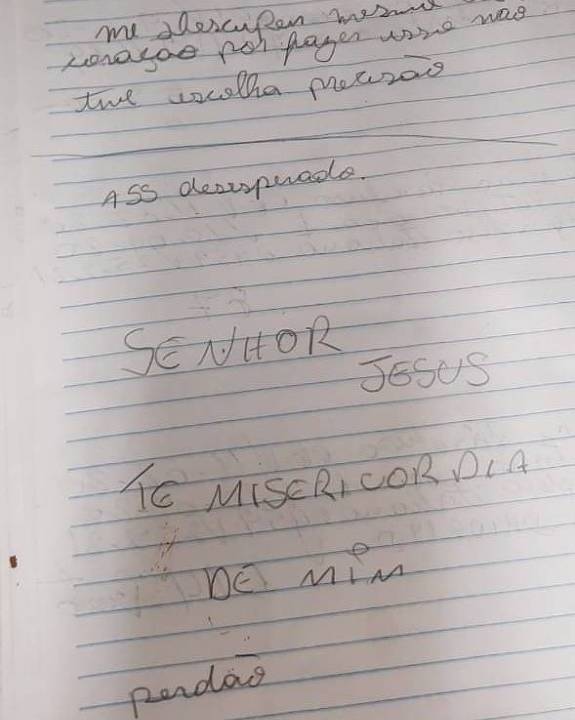 me desculpem mesmo
coração por fazer isso não
tive escolha precisão
ASS desesperado.
SENHOR
JESUS
TE MISERICORDIA
DE MIM
perdão